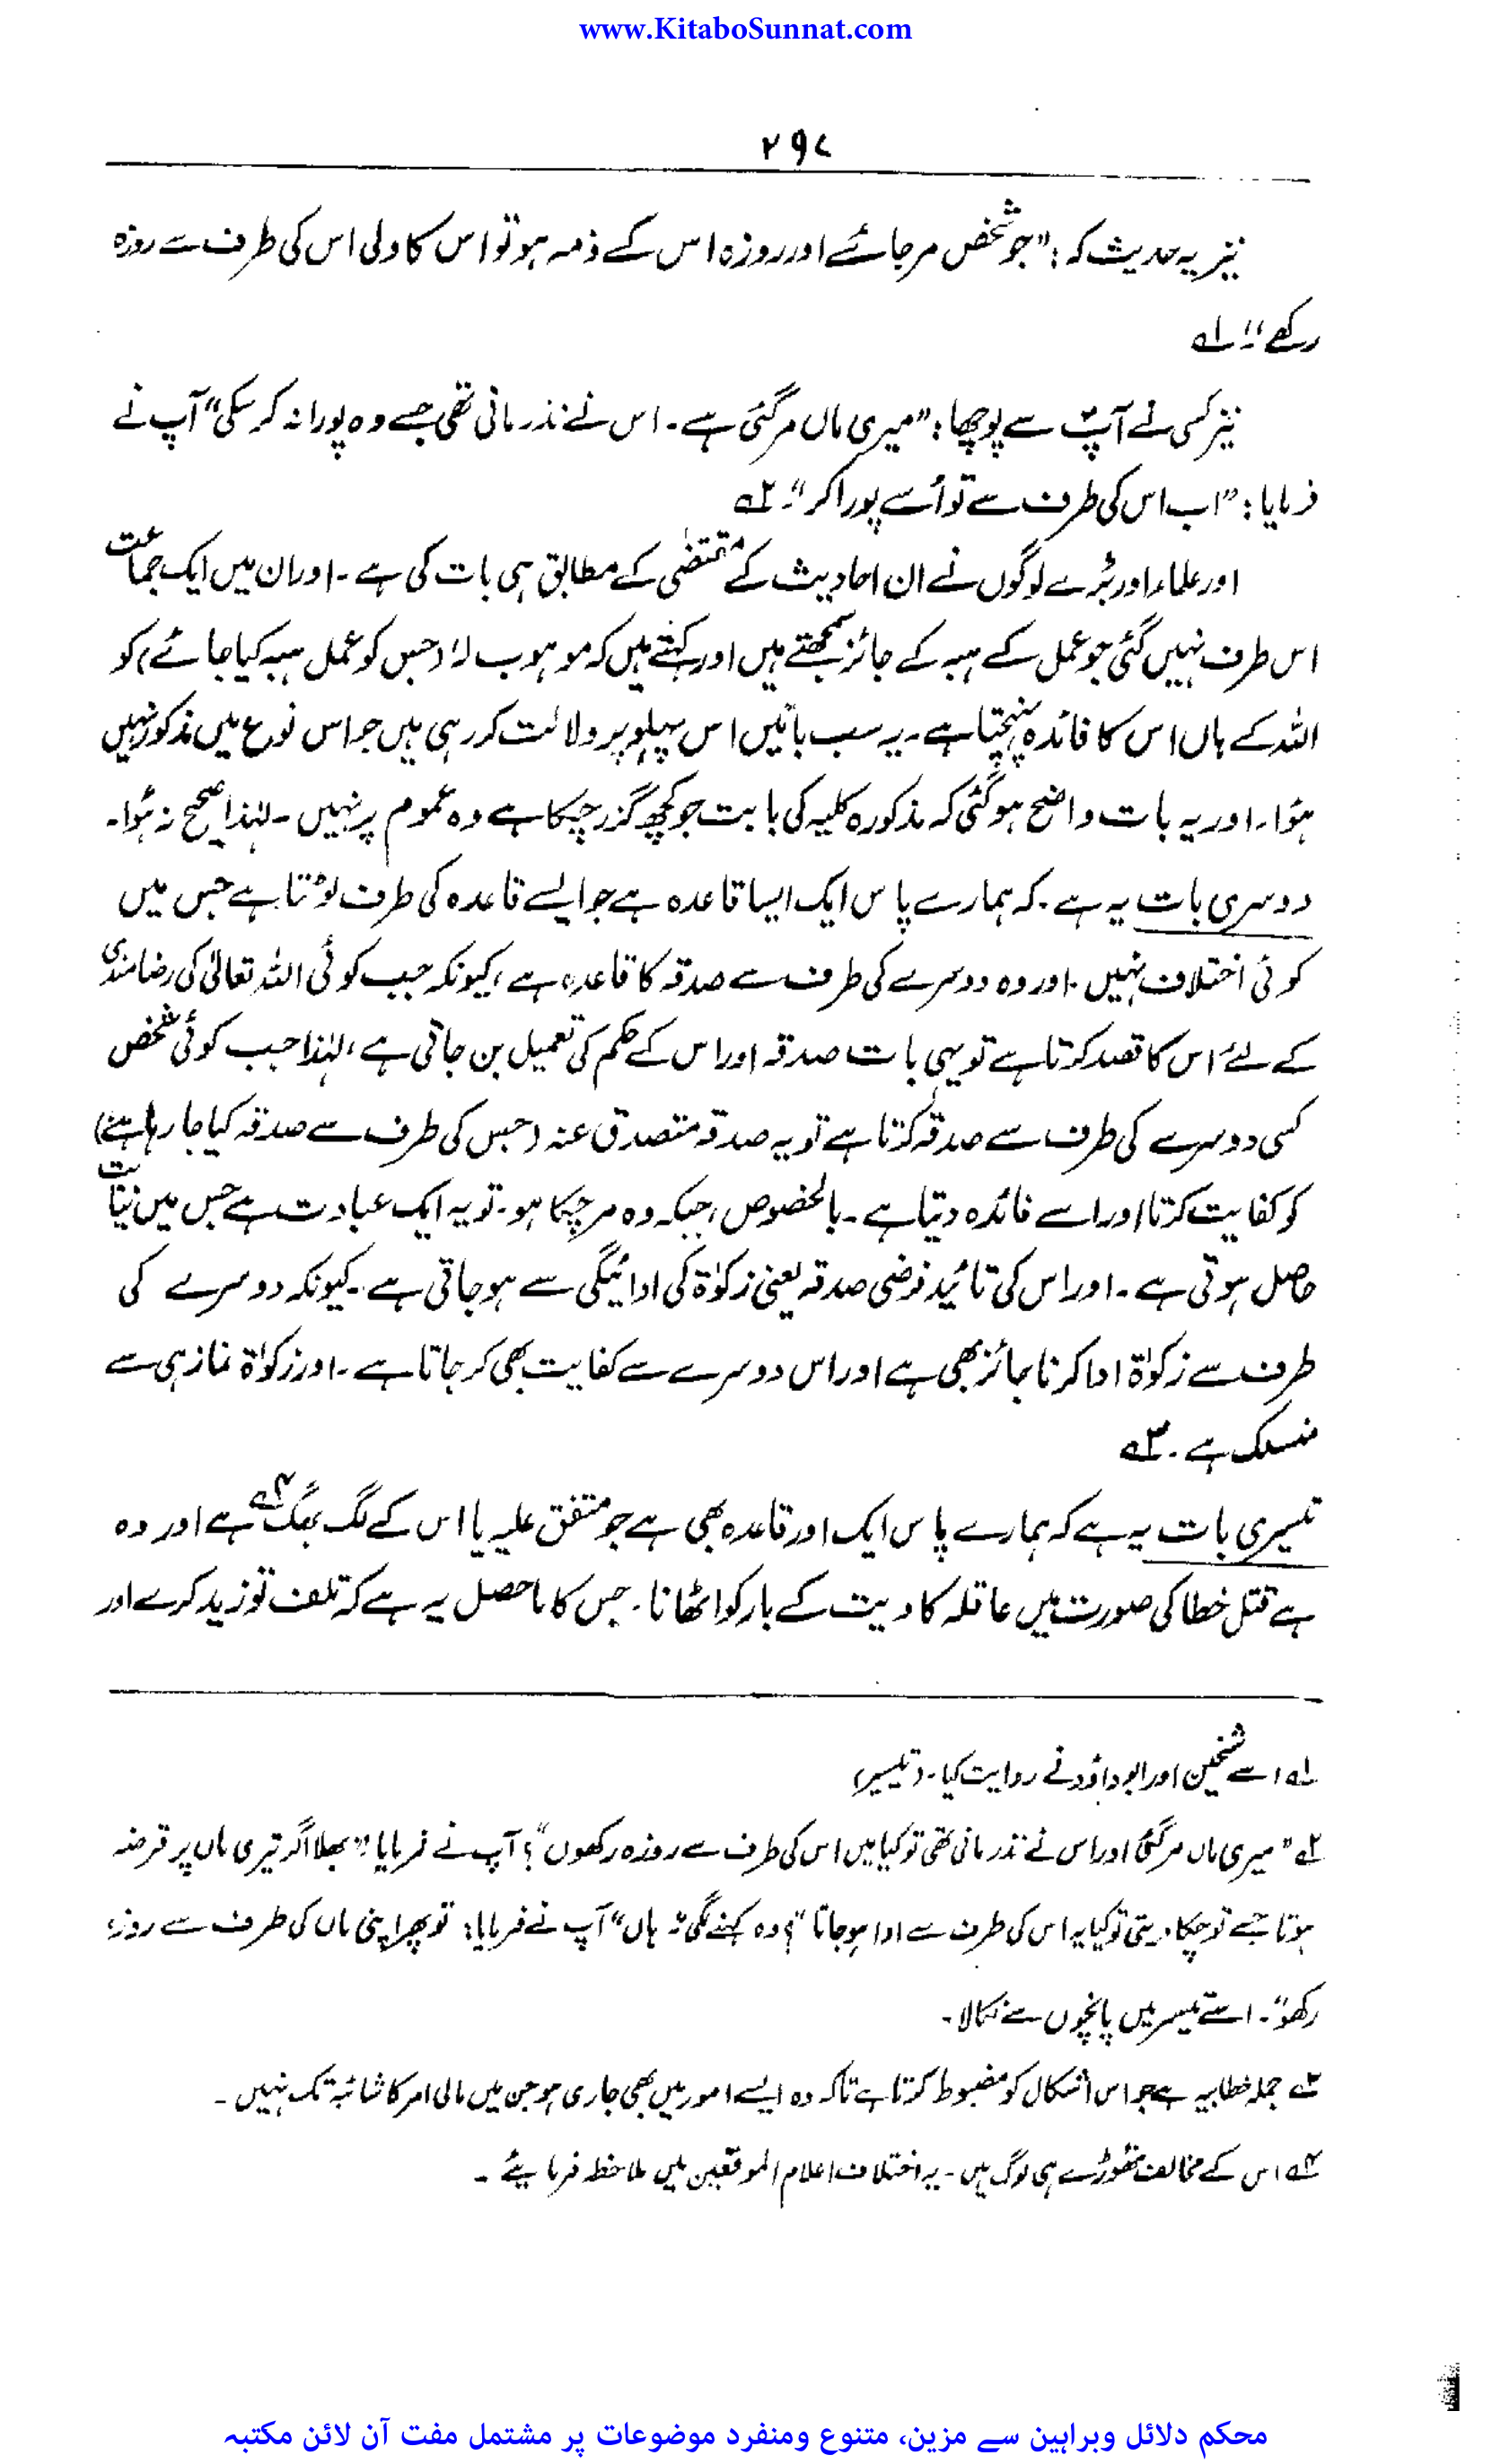 www.KitaboSunnat.com
۲۹۷
نیز یہ حدیث کہ: "جو شخص مر جائے اور روزہ اس کے ذمہ ہو تو اس کا ولی اس کی طرف سے روزہ
رکھے"۔ ؎۱
نیز کسی نے آپؐ سے پوچھا: "میری ماں مر گئی ہے۔ اس نے نذر مانی تھی جسے وہ پورا نہ کر سکی" آپ نے
فرمایا: "اب اس کی طرف سے تو اُسے پورا کر"۔ ؎۲
اور علماء اور بڑے لوگوں نے ان احادیث کے مقتضٰی کے مطابق ہی بات کی ہے۔ اور ان میں ایک جماعت
اس طرف نہیں گئی جو عمل کے ہبہ کے جائز سمجھتے ہیں اور کہتے ہیں کہ موہوب لہٗ (جس کو عمل ہبہ کیا جائے) کو
اللہ کے ہاں اس کا فائدہ پہنچتا ہے۔ یہ سب باتیں اس پہلو پر دلالت کر رہی ہیں جو اس نوع میں مذکور نہیں
ہوا۔ اور یہ بات واضح ہو گئی کہ مذکورہ کلیہ کی بابت جو کچھ گزر چکا ہے وہ عموم پر نہیں۔ لہٰذا صحیح نہ ہُوا۔
دوسری بات یہ ہے۔ کہ ہمارے پاس ایک ایسا قاعدہ ہے جو ایسے قاعدہ کی طرف لوٹتا ہے جس میں
کوئی اختلاف نہیں۔ اور وہ دوسرے کی طرف سے صدقہ کا قاعدہ ہے، کیونکہ جب کوئی اللہ تعالیٰ کی رضامندی
کے لئے اس کا قصد کرتا ہے تو یہی بات صدقہ اور اس کے حکم کی تعمیل بن جاتی ہے، لہٰذا جب کوئی شخص
کسی دوسرے کی طرف سے صدقہ کرتا ہے تو یہ صدقہ متصدق عنہ (جس کی طرف سے صدقہ کیا جا رہا ہے)
کو کفایت کرتا اور اسے فائدہ دیتا ہے۔ بالخصوص، جبکہ وہ مر چکا ہو۔ تو یہ ایک عبادت ہے جس میں نیابت
حاصل ہوتی ہے۔ اور اس کی تائید فرضی صدقہ یعنی زکوٰۃ کی ادائیگی سے ہو جاتی ہے۔ کیونکہ دوسرے کی
طرف سے زکوٰۃ ادا کرنا جائز بھی ہے اور اس دوسرے سے کفایت بھی کر جاتا ہے۔ اور زکوٰۃ نماز ہی سے
منسلک ہے۔ ؎۳
تیسری بات یہ ہے کہ ہمارے پاس ایک اور قاعدہ بھی ہے جو متفق علیہ یا اس کے لگ بھگ؎۴ ہے اور وہ
ہے قتل خطا کی صورت میں عاقلہ کا دیت کے بار کو اٹھانا۔ جس کا ماحصل یہ ہے کہ تلف تو زید کرے اور
؎۱ اسے شیخین اور ابو داؤد نے روایت کیا۔ (تیسیر)
؎۲ "میری ماں مر گئی اور اس نے نذر مانی تھی تو کیا میں اس کی طرف سے روزہ رکھوں"؟ آپ نے فرمایا "بھلا اگر تیری ماں پر قرضہ
ہوتا جسے تو چکا دیتی تو کیا یہ اس کی طرف سے ادا ہو جاتا"؟ وہ کہنے لگی "ہاں" آپ نے فرمایا: تو پھر اپنی ماں کی طرف سے روزہ
رکھو"۔ اسے تیسیر میں پانچوں سے نکالا۔
؎۳ جملہ خطابیہ ہے جو اس اشکال کو مضبوط کرتا ہے تاکہ وہ ایسے امور میں بھی جاری ہو جن میں مالی امر کا شائبہ تک نہیں۔
؎۴ اس کے مخالف تھوڑے ہی لوگ ہیں۔ یہ اختلاف اعلام الموقعین میں ملاحظہ فرمائیے۔
محکم دلائل وبراہین سے مزین، متنوع ومنفرد موضوعات پر مشتمل مفت آن لائن مکتبہ